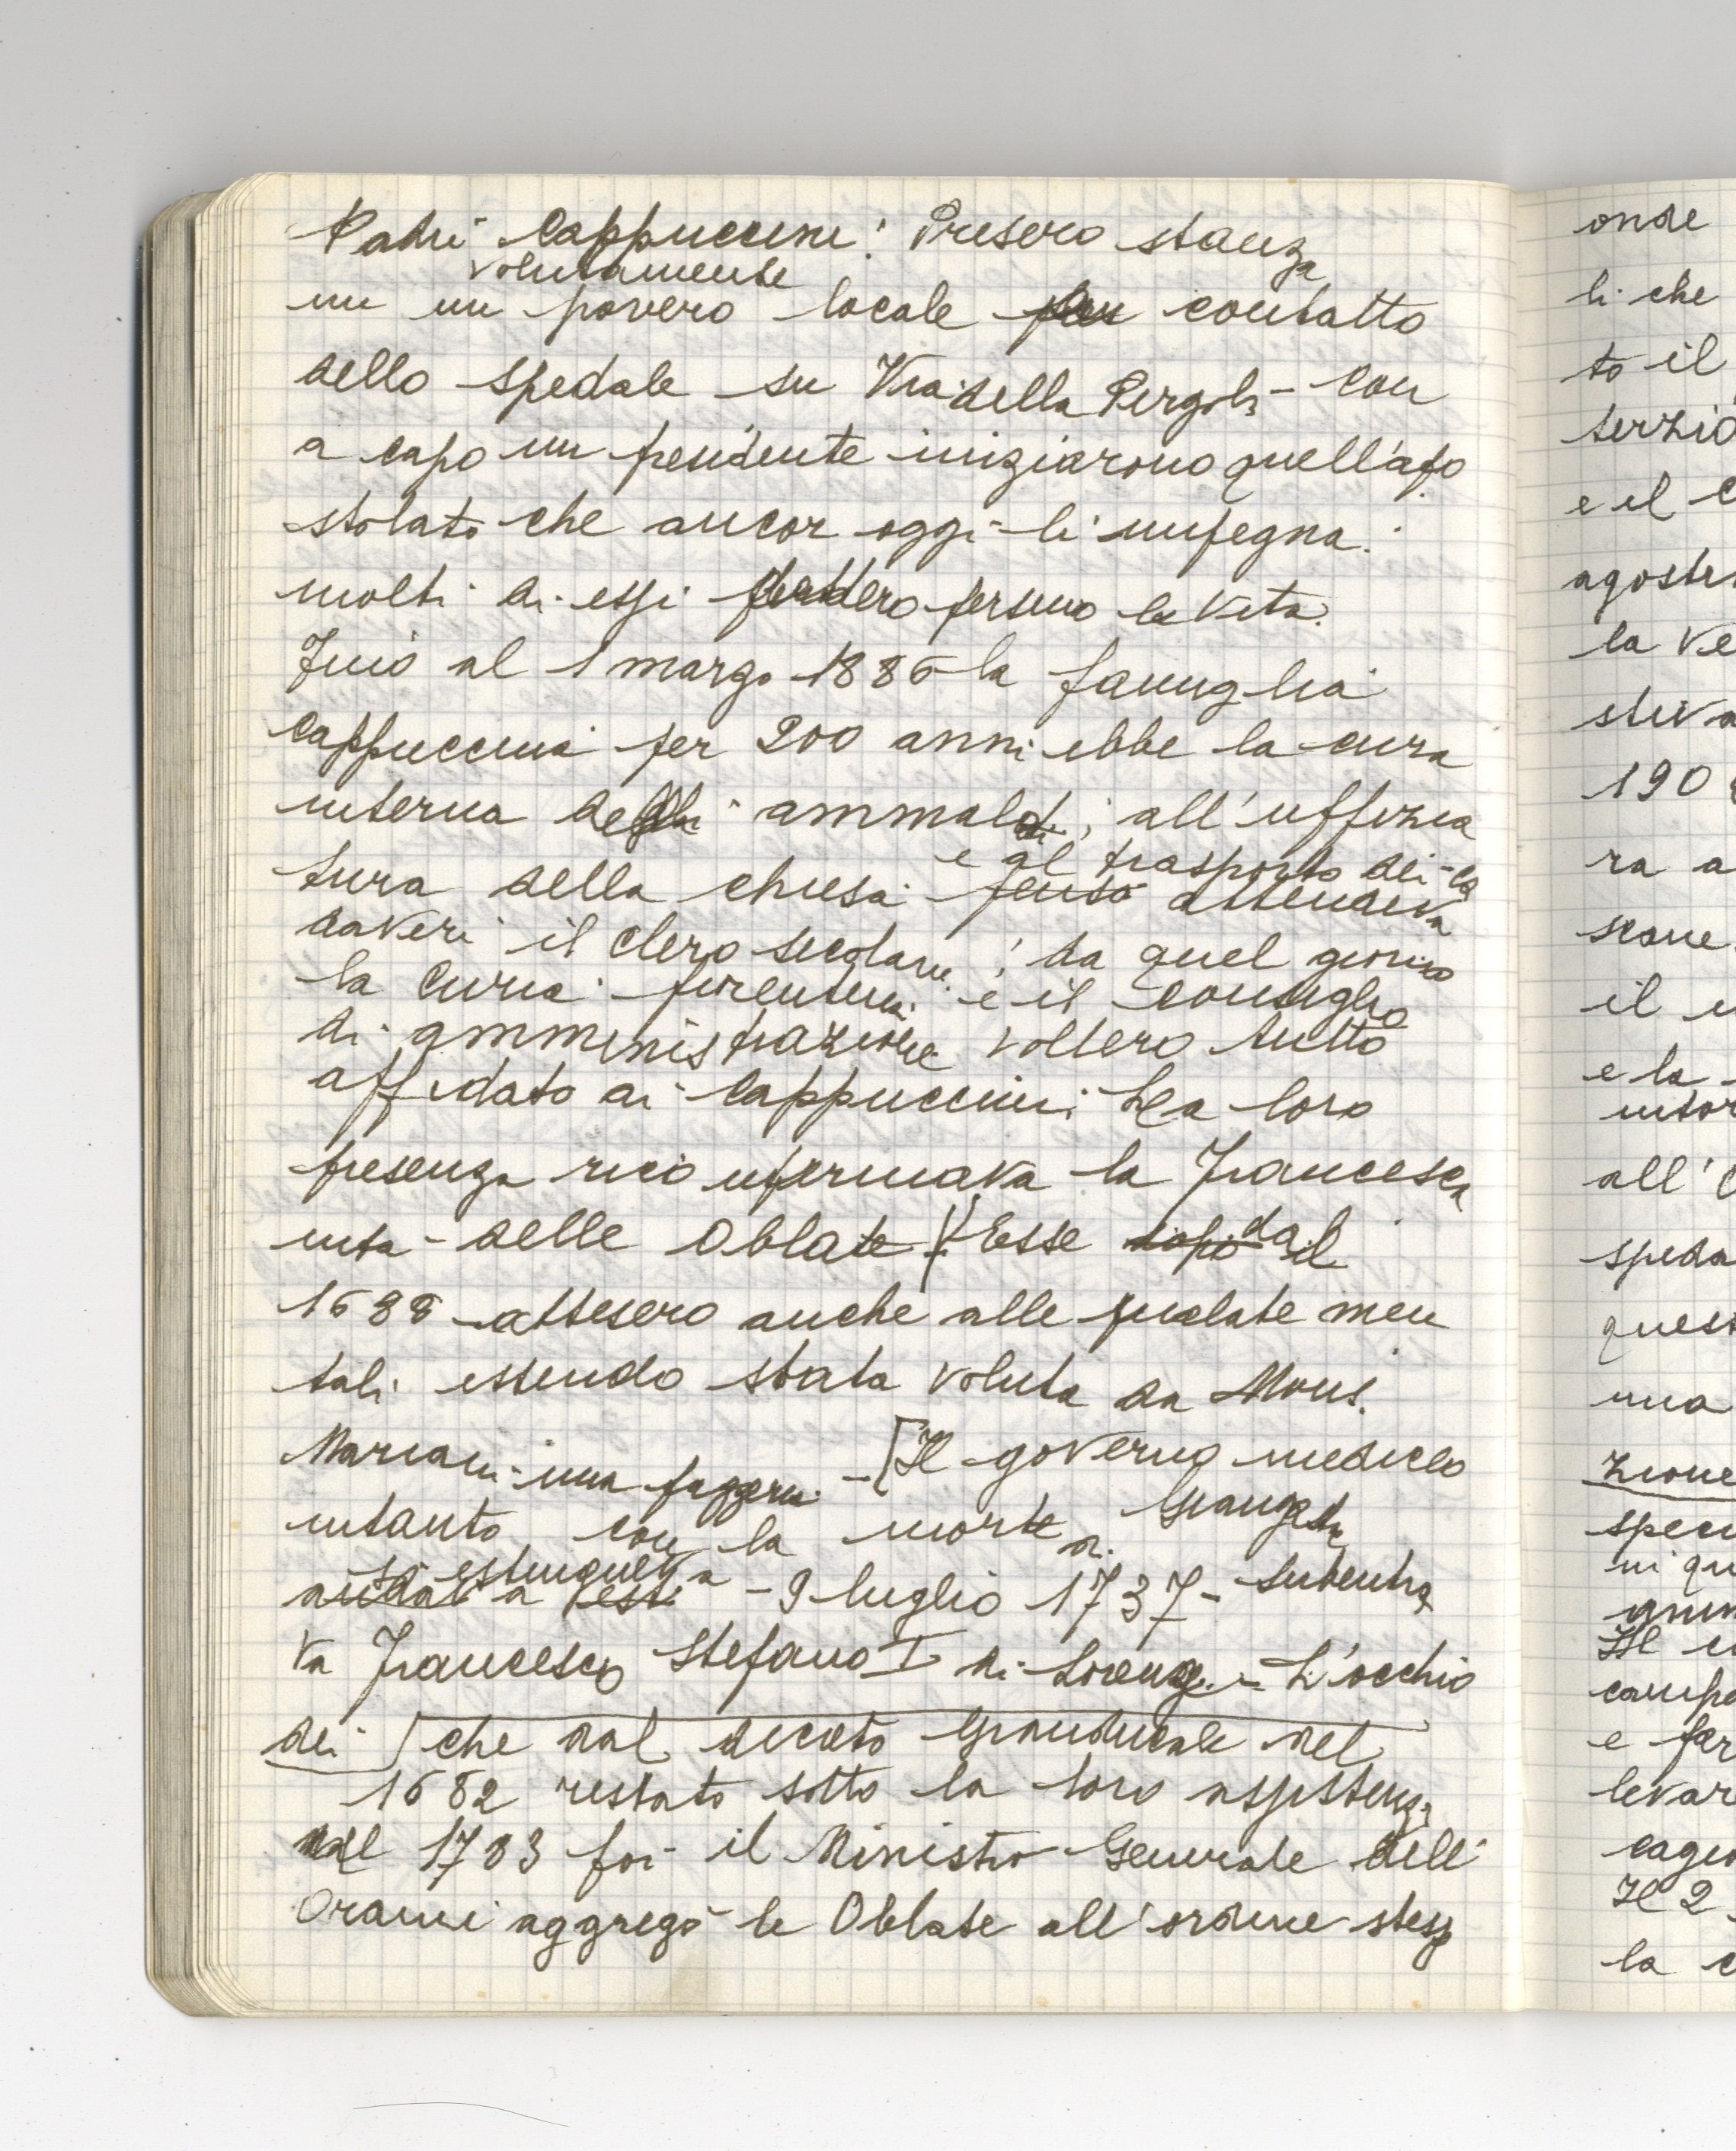 Padri Cappuccini! Presero stanza
volutamente
in un povero locale contatto
dello spedale su Via della Pergola - Con
a capo un presidente iniziarono quell'apo
stolato che ancor oggi li impegna:
molti di essi perdero persino la vita.
Fino al 1 marzo 1886 la famiglia
cappuccina per 200 anni ebbe la cura
interna degli ammalati; all'uffizia
e al trasporto dei ca
tura della chiesa attendeva
daveri il clero secolare; da quel giorno
la Curia fiorentina e il consiglio
di amministrazione vollero tutto
affidato ai Cappuccini. La loro
presenza riconfermava la Francesca
nita delle Oblate. Esse dopo dal il
1688 attesero anche alle malate men
tali essendo stata voluta da Mons.
Mariani una - [Il governo mediceo
intanto con la morte di Giangastone
si estingueva
andava - 9 luglio 1737 - Subentra
va Francesco Stefano I di Lorena - L'occhio
dei che dal decreto Granducale del
1682 restato sotto la loro assistenza
nel 1783 poi il Ministro Generale dell'
aggregò le Oblate all'ordine stesso
onde
li che
to il
terzi
e il C
agosti
la ve
stiva
190
ra a
scane
il
e la
intor
all'
speda
quest
una
zione
speci
ni qu
Il
campa
e far
levar
cagio
Il 2
la c